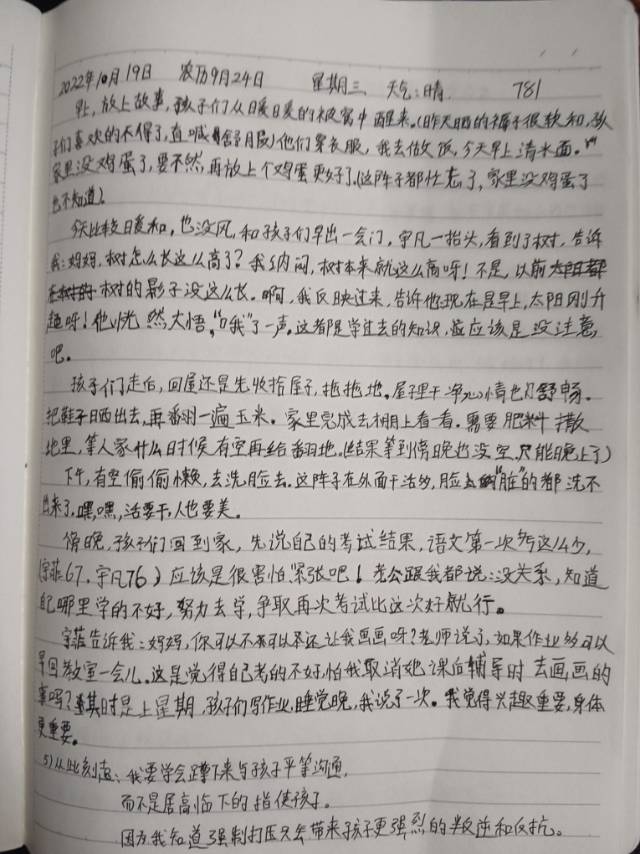 2022年10月19日 农历9月24日 星期三 天气:晴. 781
早上,放上故事,孩子们从暖暖的被窝中醒来。(昨天晒的褥子很软和,孩
子们喜欢的不得了,直喊舒服)他们穿衣服,我去做饭,今天早上清水面。"
家里没鸡蛋了,要不然,再放上个鸡蛋更好了.(这阵子都忙忘了,家里没鸡蛋了
也不知道)
今天比较暖和,也没风,和孩子们早出一会门,宇凡一抬头,看到了树,告诉
我:妈妈,树怎么长这么高了?我纳闷,树本来就这么高呀!不是,以前太阳都
树的影子没这么长。啊,我反映过来,告诉他现在是早上,太阳刚升
起呀!他恍然大悟,"哦"了一声。这都是学过去的知识,应该是没注意
吧。
孩子们走后,回屋还是先收拾屋子,拖拖地。屋子里干净心情也舒畅.
把鞋子晒出去,再翻一遍玉米。家里完成去棚上看一看.需要肥料撒
地里,等人家什么时候有空再给翻地.(结果等到傍晚也没空,只能晚上了)
下午,有空偷偷懒,去洗脸去。这阵子在外面干活多,脸上"脏"的都洗不
出来了,嘿,嘿,活要干,人也要美。
傍晚,孩子们回到家,先说自己的考试结果,语文第一次考这么少,
(宇菲67.宇凡76)应该是很害怕紧张吧!老公跟我都说:没关系,知道
自己哪里学的不好,努力去学,争取再次考试比这次好就行。
宇菲告诉我:妈妈,你可以不可以还让我画画呀?老师说了,如果作业多可以
早回教室一会儿.这是觉得自己考的不好,怕我取消她课后辅导时去画画的
事吗?其时是上星期,孩子们写作业,睡觉晚,我说了一次。我觉得兴趣重要,身体
更重要。
5)从此刻起:我要学会蹲下来与孩子平等沟通,
而不是居高临下的指使孩子。
因为我知道强制打压只会带来孩子更强烈的叛逆和反抗。